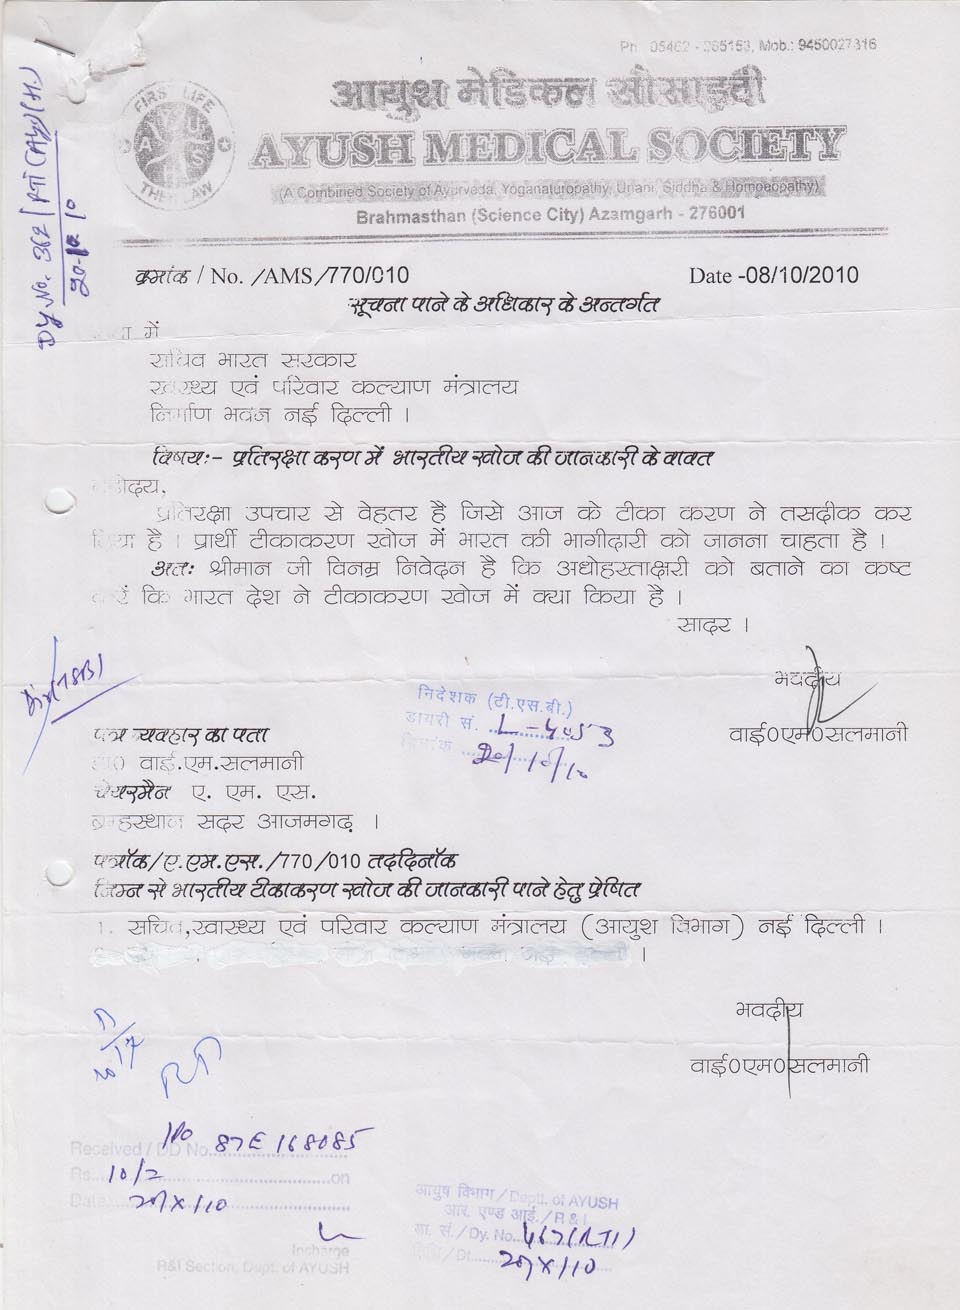 Ph: 05462 - 265153, Mob.: 9450027816
आयुश मेडिकल सौसाइटी
FIRST LIFE THEN LAW
AYUSH MEDICAL SOCIETY
(A Combined Society of Ayurveda, Yoganaturopathy, Unani, Siddha & Homoeopathy)
Brahmasthan (Science City) Azamgarh - 276001
Dy No. 362/RTI(Ay)(H.)
20.10.10
क्रमांक / No. /AMS/770/010 Date -08/10/2010
सूचना पाने के अधिकार के अन्तर्गत
में
सचिव भारत सरकार
स्वास्थ्य एवं परिवार कल्याण मंत्रालय
निर्माण भवन नई दिल्ली ।
विषय:- प्रतिरक्षा करण में भारतीय खोज की जानकारी के वावत
महोदय,
प्रतिरक्षा उपचार से वेहतर है जिसे आज के टीका करण ने तसदीक कर
दिया है । प्रार्थी टीकाकरण खोज में भारत की भागीदारी को जानना चाहता है !
अतः श्रीमान जी विनम्र निवेदन है कि अधोहस्ताक्षरी को बताने का कष्ट
करें कि भारत देश ने टीकाकरण खोज में क्या किया है ।
सादर ।
भवदीय
वाई0एम0सलमानी
निदेशक (टी.एस.बी.)
डायरी सं. L-4053
दिनांक 20/10/10
पत्र व्यवहार का पता
डा0 वाई.एम.सलमानी
चेयरमैन ए. एम. एस.
ब्रम्हस्थान सदर आजमगढ़ ।
पत्रॉक/ए.एम.एस./770/010 तद्दिनॉक
निम्न से भारतीय टीकाकरण खोज की जानकारी पाने हेतु प्रेषित
1. सचिव,स्वास्थ्य एवं परिवार कल्याण मंत्रालय (आयुश विभाग) नई दिल्ली ।
भवदीय
वाई0एम0सलमानी
Received / DD No. 87E 168085
Rs. 10/2 on
Date
Incharge
R&I Section, Dept. of AYUSH
आयुष विभाग / Deptt. of AYUSH
आर. एण्ड आई. / R & I
डा. सं. / Dy. No. 467(RTI)
तिथि / Dt.